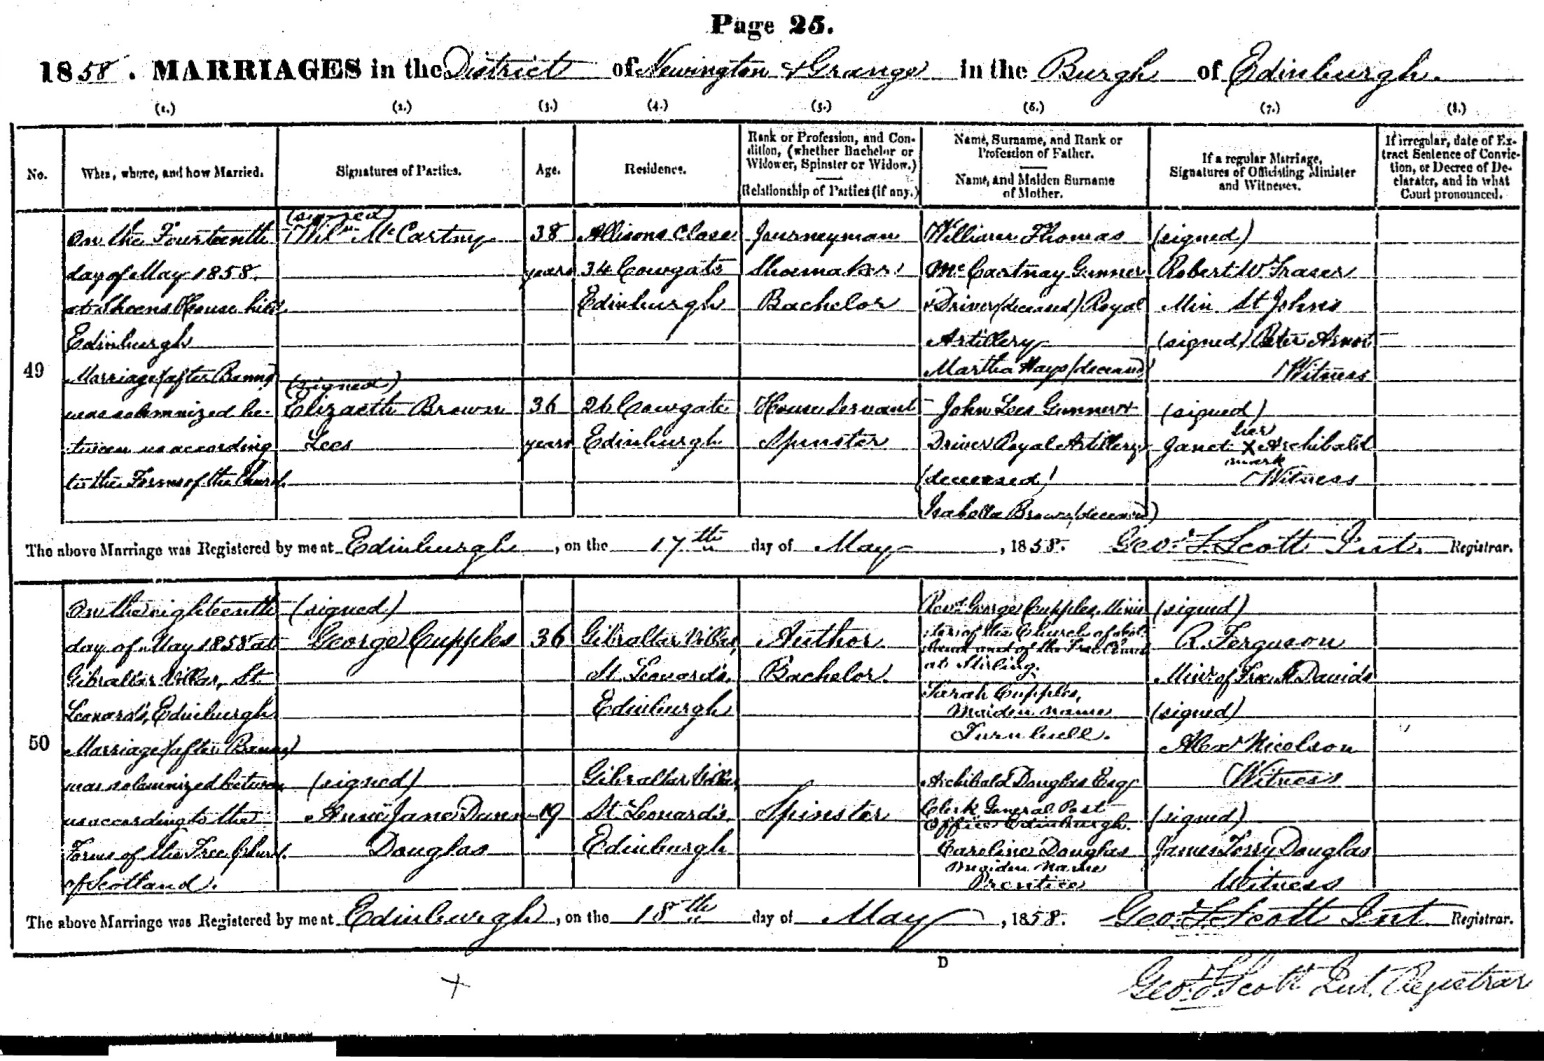 Page 25.
1858. MARRIAGES in the District of Newington & Grange in the Burgh of Edinburgh.
(1.) (2.) (3.) (4.) (5.) (6.) (7.) (8.)
No.
When, where, and how Married.
Signatures of Parties.
Age.
Residence.
Rank or Profession, and Con-
dition, (whether Bachelor or
Widower, Spinster or Widow.)
Relationship of Parties (if any.)
Name, Surname, and Rank or
Profession of Father.
Name, and Maiden Surname
of Mother.
If a regular Marriage,
Signatures of Officiating Minister
and Witnesses.
If irregular, date of Ex-
tract Sentence of Convic-
tion, or Decree of De-
clarator, and in what
Court pronounced.
49
On the Fourteenth
day of May 1858.
at House hill
Edinburgh
Marriage (after Banns)
was solemnized be-
tween us according
to the Forms of the Church
(signed)
Wilm McCartney
(signed)
Elizabeth Brown
Lees
38
years
36
years
Allisons Close
34 Cowgate
Edinburgh
26 Cowgate
Edinburgh
Journeyman
Shoemaker
Bachelor
House Servant
Spinster
William Thomas
McCartnay Gunner
& Driver (deceased) Royal
Artillery
Martha Hays (deceased)
John Lees Gunner &
Driver Royal Artillery
(deceased)
Isabella Brown (deceased)
(signed)
Robert W Fraser
Min St Johns
(signed) Peter Arnot
Witness
(signed)
her
Janet X Archibald
mark
Witness
The above Marriage was Registered by me at Edinburgh, on the 17th day of May, 1858. Geo. F. Scott Int. Registrar.
50
On the eighteenth
day of May 1858 at
Gibraltar Villas, St
Leonard's, Edinburgh
Marriage (after Banns)
was solemnized between
us according to the
Forms of the Free Church
of Scotland.
(signed)
George Cupples
(signed)
Anne Jane Dunn
Douglas
36
19
Gibraltar Villas,
St. Leonard's,
Edinburgh
Gibraltar Villas,
St. Leonard's,
Edinburgh
Author
Bachelor.
Spinster
Revd. George Cupples, Minis
ter of the Church of Scot
land and of the Free Church
at Stirling.
Sarah Cupples,
maiden name
Turnbull.
Archibald Douglas Esq
Clerk General Post
Office Edinburgh.
Caroline Douglas
maiden name
Prentice
(signed)
R. Ferguson
Minr. of Free St Davids
(signed)
Alexr Nicolson
Witness
(signed)
James Terry Douglas
Witness
The above Marriage was Registered by me at Edinburgh, on the 18th day of May, 1858. Geo. F. Scott Int. Registrar.
D
Geo. F. Scott Int. Registrar